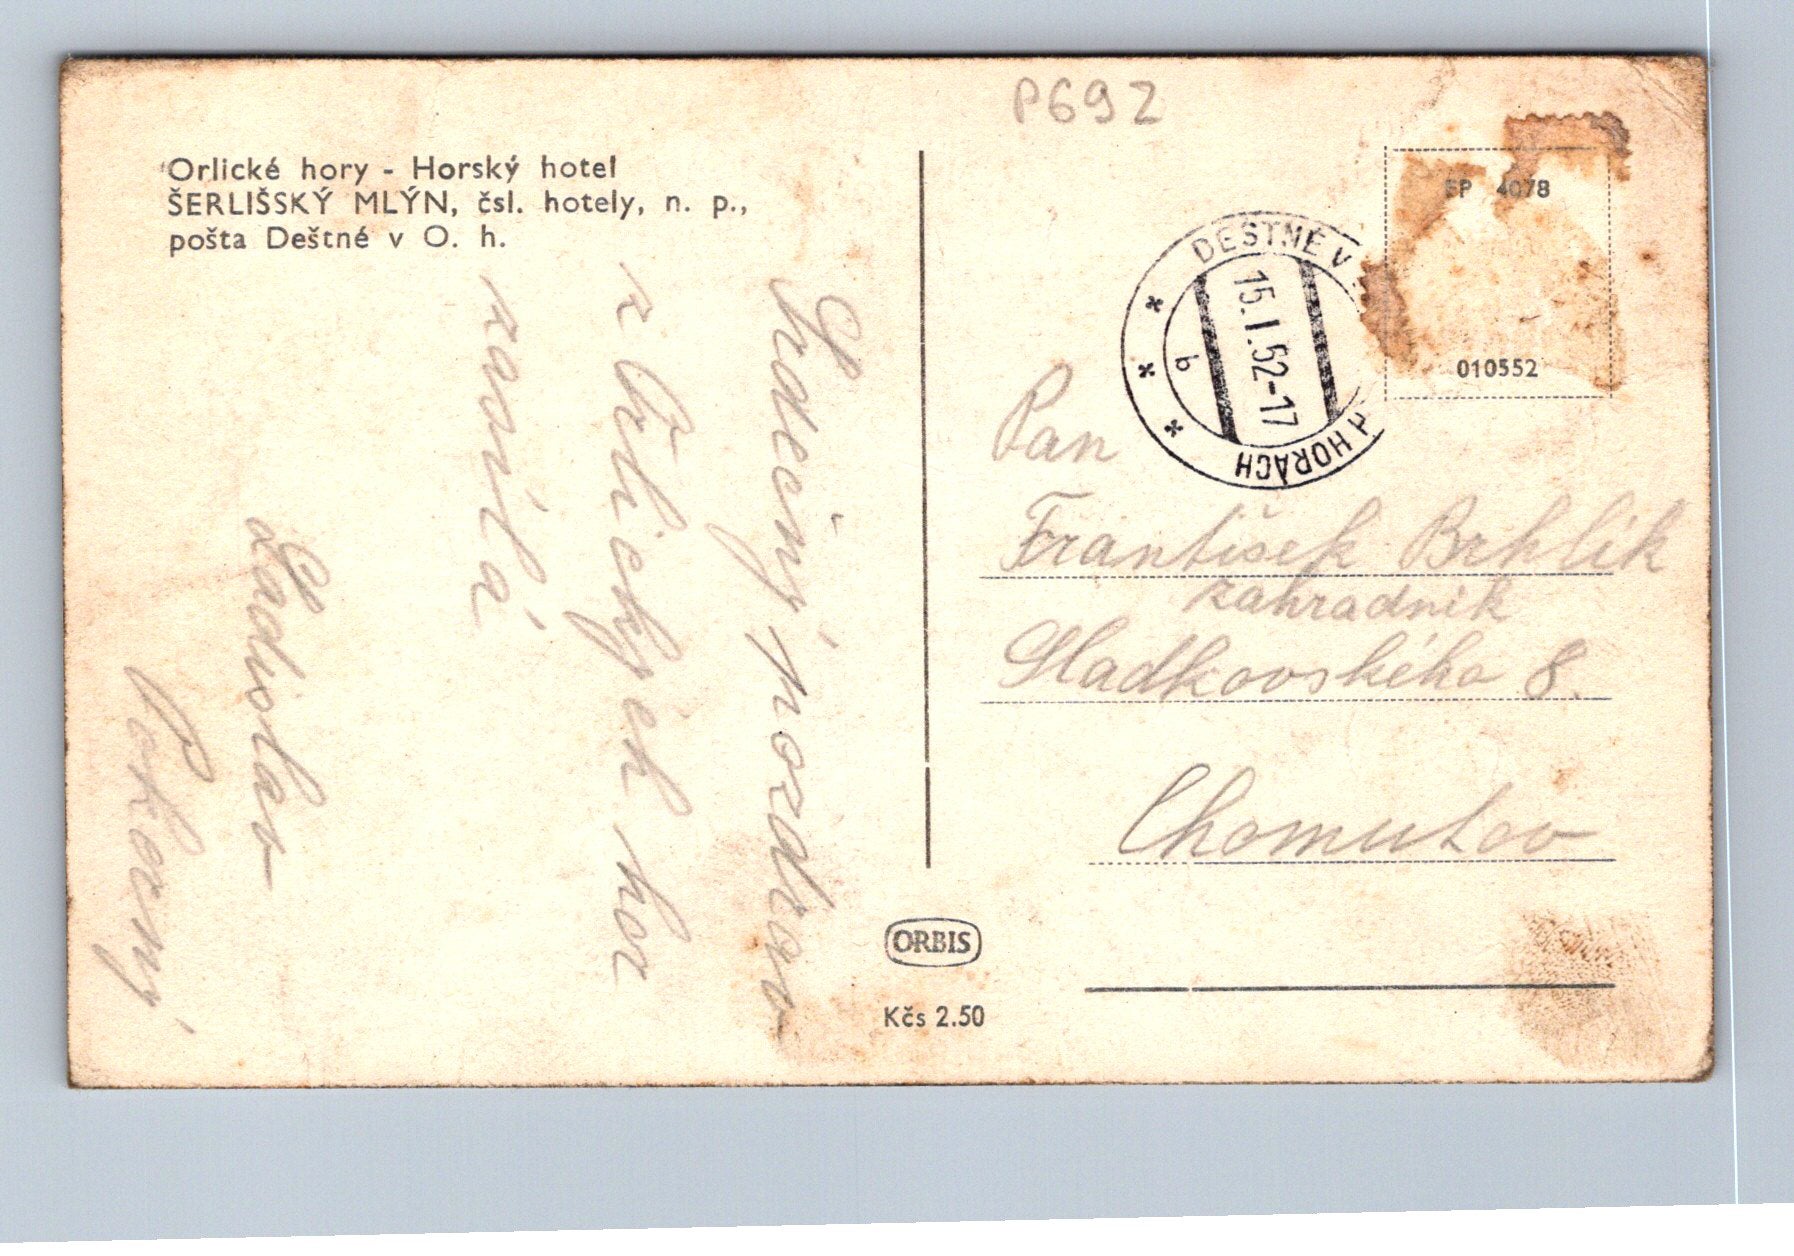 P692
Orlické hory - Horský hotel
ŠERLIŠSKÝ MLÝN, čsl. hotely, n. p.,
pošta Deštné v O. h.
Srdečný pozdrav
z Orlických hor
zasílá
Ladislav
Pokorný
DEŠTNÉ V
H HORÁCH
15.I.52-17
b
FP 4078
010552
Pan
František Brhlík
zahradník
Sladkovského 8.
Chomutov
ORBIS
Kčs 2.50